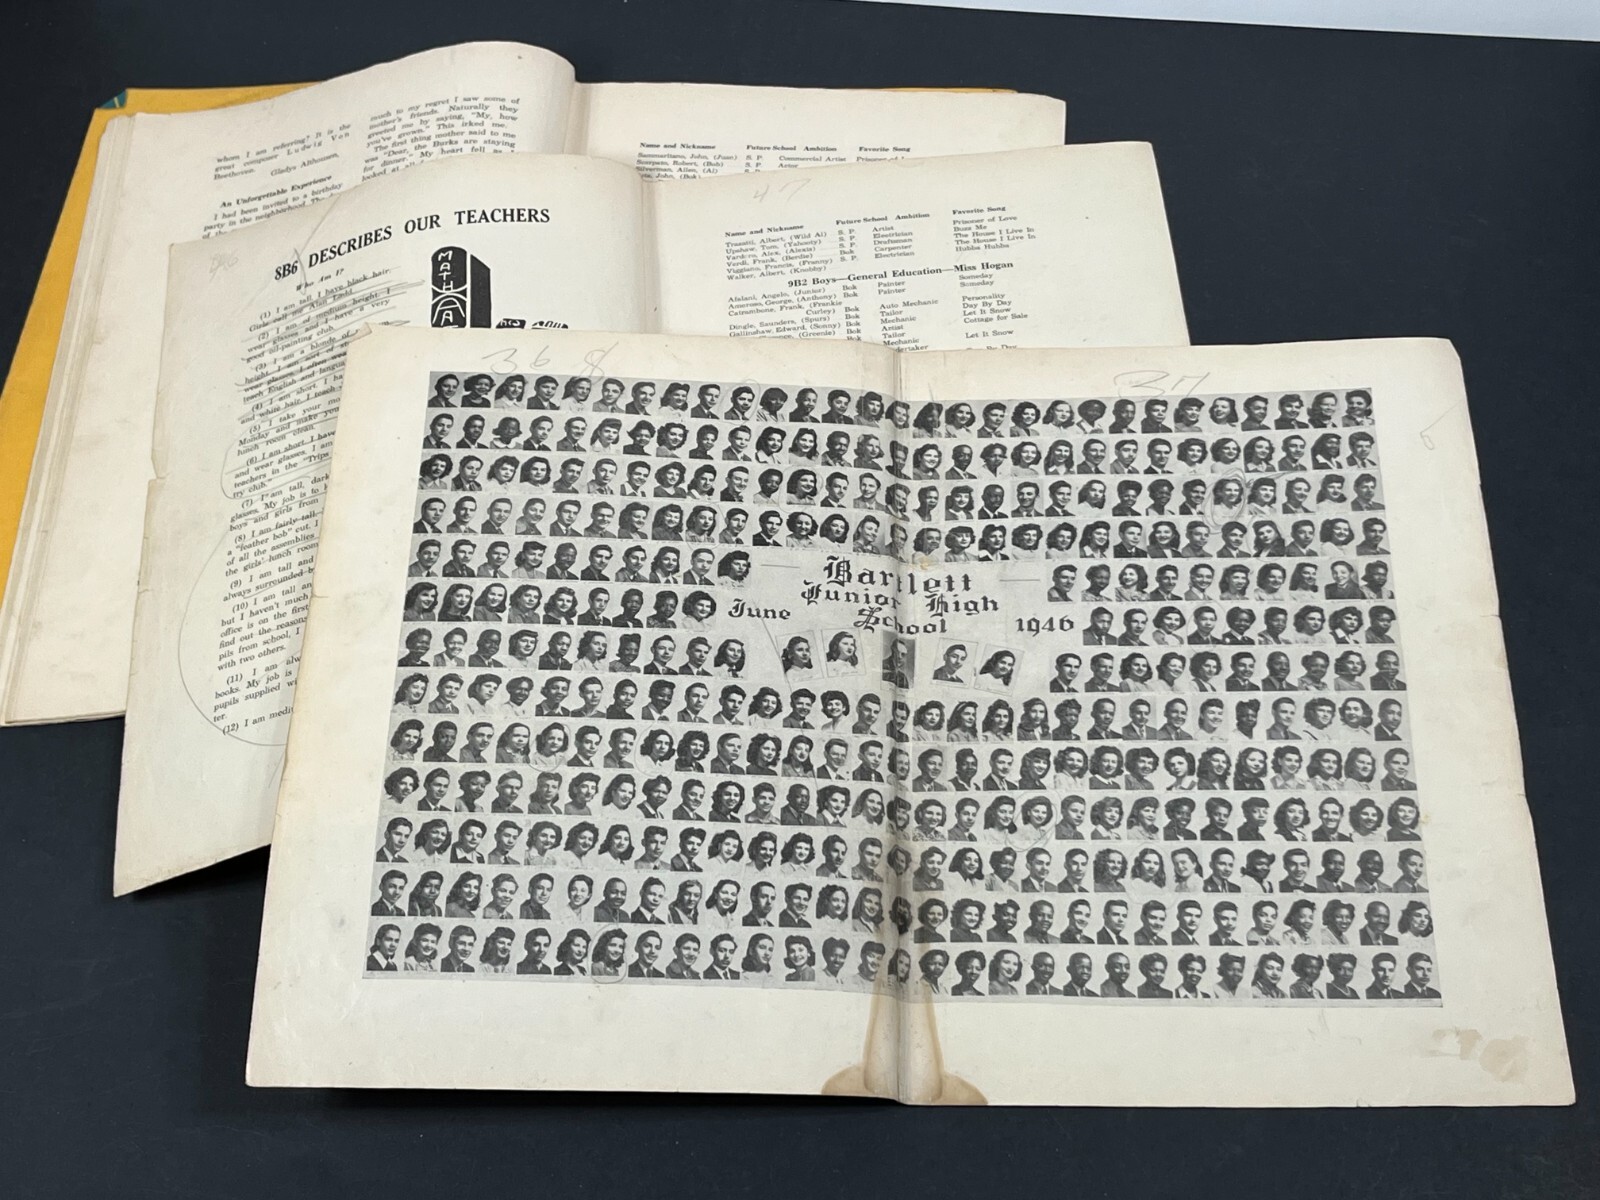 whom I am referring? It is the
great composer Ludwig Von
Beethoven. Gladys Althousen,
An Unforgettable Experience
I had been invited to a birthday
party in the neighborhood.
much to my regret I saw some of
mother's friends. Naturally they
greeted me by saying, "My, how
you've grown." This irked me.
The first thing mother said to me
was "Dear, the Burks are staying
for dinner." My heart fell as I
looked at
Name and Nickname Future School Ambition Favorite Song
Sammaritano, John, (Juan) S. P. Commercial Artist Prisoner of
Scarpato, Robert, (Bob) S. P. Actor
Silverman, Allen, (Al) S. P.
John, (Bok)
8B6 DESCRIBES OUR TEACHERS
Who Am I?
(1) I am tall, I have black hair.
Girls call me Alan Ladd.
(2) I am of medium height, I
wear glasses, and I have a very
good oil-painting club.
(3) I am a blonde of
height. I am sort of
wear glasses. I often wear
teach English and
(4) I am short. I
and white hair. I teach
(5) I take your
Monday and make you
lunch room clean.
(6) I am short. I have
and wear glasses. I am
teachers in the "Trips
try club."
(7) I am tall, dark
glasses. My job is to
boys and girls from
(8) I am fairly tall,
a "feather bob" cut. I
of all the assemblies
the girls' lunch room
(9) I am tall and
always surrounded by
(10) I am tall an
but I haven't much
office is on the first
find out the reasons
pils from school, I
with two others.
(11) I am alw
books. My job is
pupils supplied wi
ter.
(12) I am medi
MATH
47
Name and Nickname Future School Ambition Favorite Song
Trasatti, Albert, (Wild Al) S. P. Artist Prisoner of Love
Upshaw, Tom, (Yahooty) S. P. Electrician Buzz Me
Vardaro, Alex, (Alexis) S. P. Draftsman The House I Live In
Verdi, Frank, (Berdie) Bok Carpenter The House I Live In
Viggiano, Francis, (Franny) S. P. Electrician Hubba Hubba
Walker, Albert, (Knobby)
9B2 Boys—General Education—Miss Hogan
Afslani, Angelo, (Junior) Bok Painter Someday
Amoroso, George, (Anthony) Bok Painter Someday
Catrambone, Frank, (Frankie
Curley) Bok Auto Mechanic Personality
Dingle, Saunders, (Spurs) Bok Tailor Day By Day
Gallinshaw, Edward, (Sonny) Bok Mechanic Let It Snow
Bok Artist Cottage for Sale
Bok Tailor
Mechanic Let It Snow
36 37
Bartlett
Junior High
School
June 1946